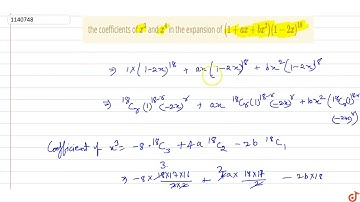 1140748
the coefficients of x³ and x⁴ in the expansion of (1 + ax + bx²)(1 − 2x)¹⁸
⇒ 1×(1-2x)¹⁸ + ax(1-2x)¹⁸ + bx²(1-2x)¹⁸
⇒ ¹⁸Cᵣ(1)¹⁸⁻ʳ(-2x)ʳ + ax ¹⁸Cᵣ(1)¹⁸⁻ʳ(-2x)ʳ + bx²(¹⁸Cᵣ(1)¹⁸⁻ʳ
(-2x)ʳ
Coefficient of x³ = -8·¹⁸C₃ + 4a ¹⁸C₂ - 2b ¹⁸C₁
⇒ -8 × 18×17×16 / 3×2 + 4a × 18×17 / 2 - 2b×18